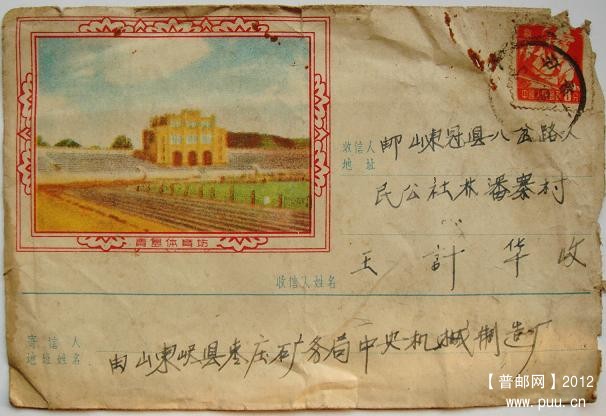 青岛体育场
收信人
地址
邮 山东冠县八公路人
民公社林潘寨村
王 計 华 收
收信人姓名
寄信人
地址姓名
由山东峄县枣庄矿务局中央机械制造厂
中国人民邮政
8分
【普邮网】2012
www.puu.cn